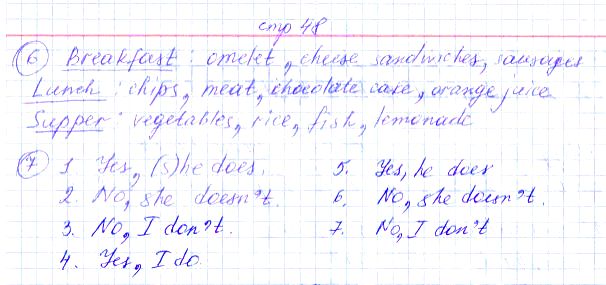 стр 48
6 Breakfast: omelet, cheese sandwiches, sausages
Lunch: chips, meat, chocolate cake, orange juice
Supper: vegetables, rice, fish, lemonade
7 1 Yes, (s)he does.
2. No, she doesn't.
3. No, I don't.
4. Yes, I do.
5. Yes, he does
6. No, she doesn't.
7. No, I don't